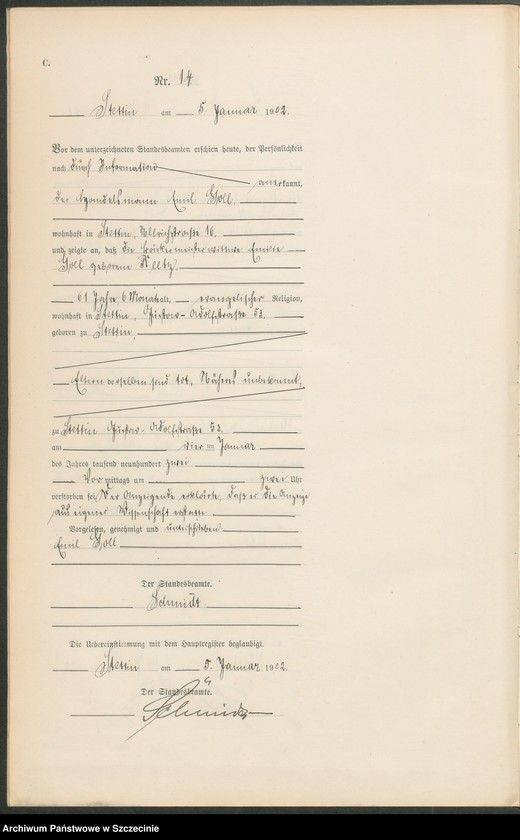 C.
Nr. 14
Stettin am 5. Januar 1902.
Vor dem unterzeichneten Standesbeamten erschien heute, der Persönlichkeit
nach durch Information
anerkannt,
der Handelsmann Emil Goll.
wohnhaft in Stettin, Ullrichstraße 16.
und zeigte an, daß die Emilie
Goll geborene
61 Jahre 6 Monate alt, evangelischer Religion,
wohnhaft in Stettin, Gustav-Adolfstraße 53.
geboren zu Stettin,
Eltern derselben sind tot, Näheres unbekannt,
zu Stettin Gustav-Adolfstraße 53.
am vier ten Januar
des Jahres tausend neunhundert zwei
Vor mittags um zwei Uhr
verstorben sei. Der Anzeigende erklärte, daß er die Anzeige
aus eigener Wissenschaft erstatte.
Vorgelesen, genehmigt und unterschrieben
Emil Goll
Der Standesbeamte.
Schmidt
Die Uebereinstimmung mit dem Hauptregister beglaubigt.
Stettin am 5. Januar 1902.
Der Standesbeamte.
Schmidt
Archiwum Państwowe w Szczecinie